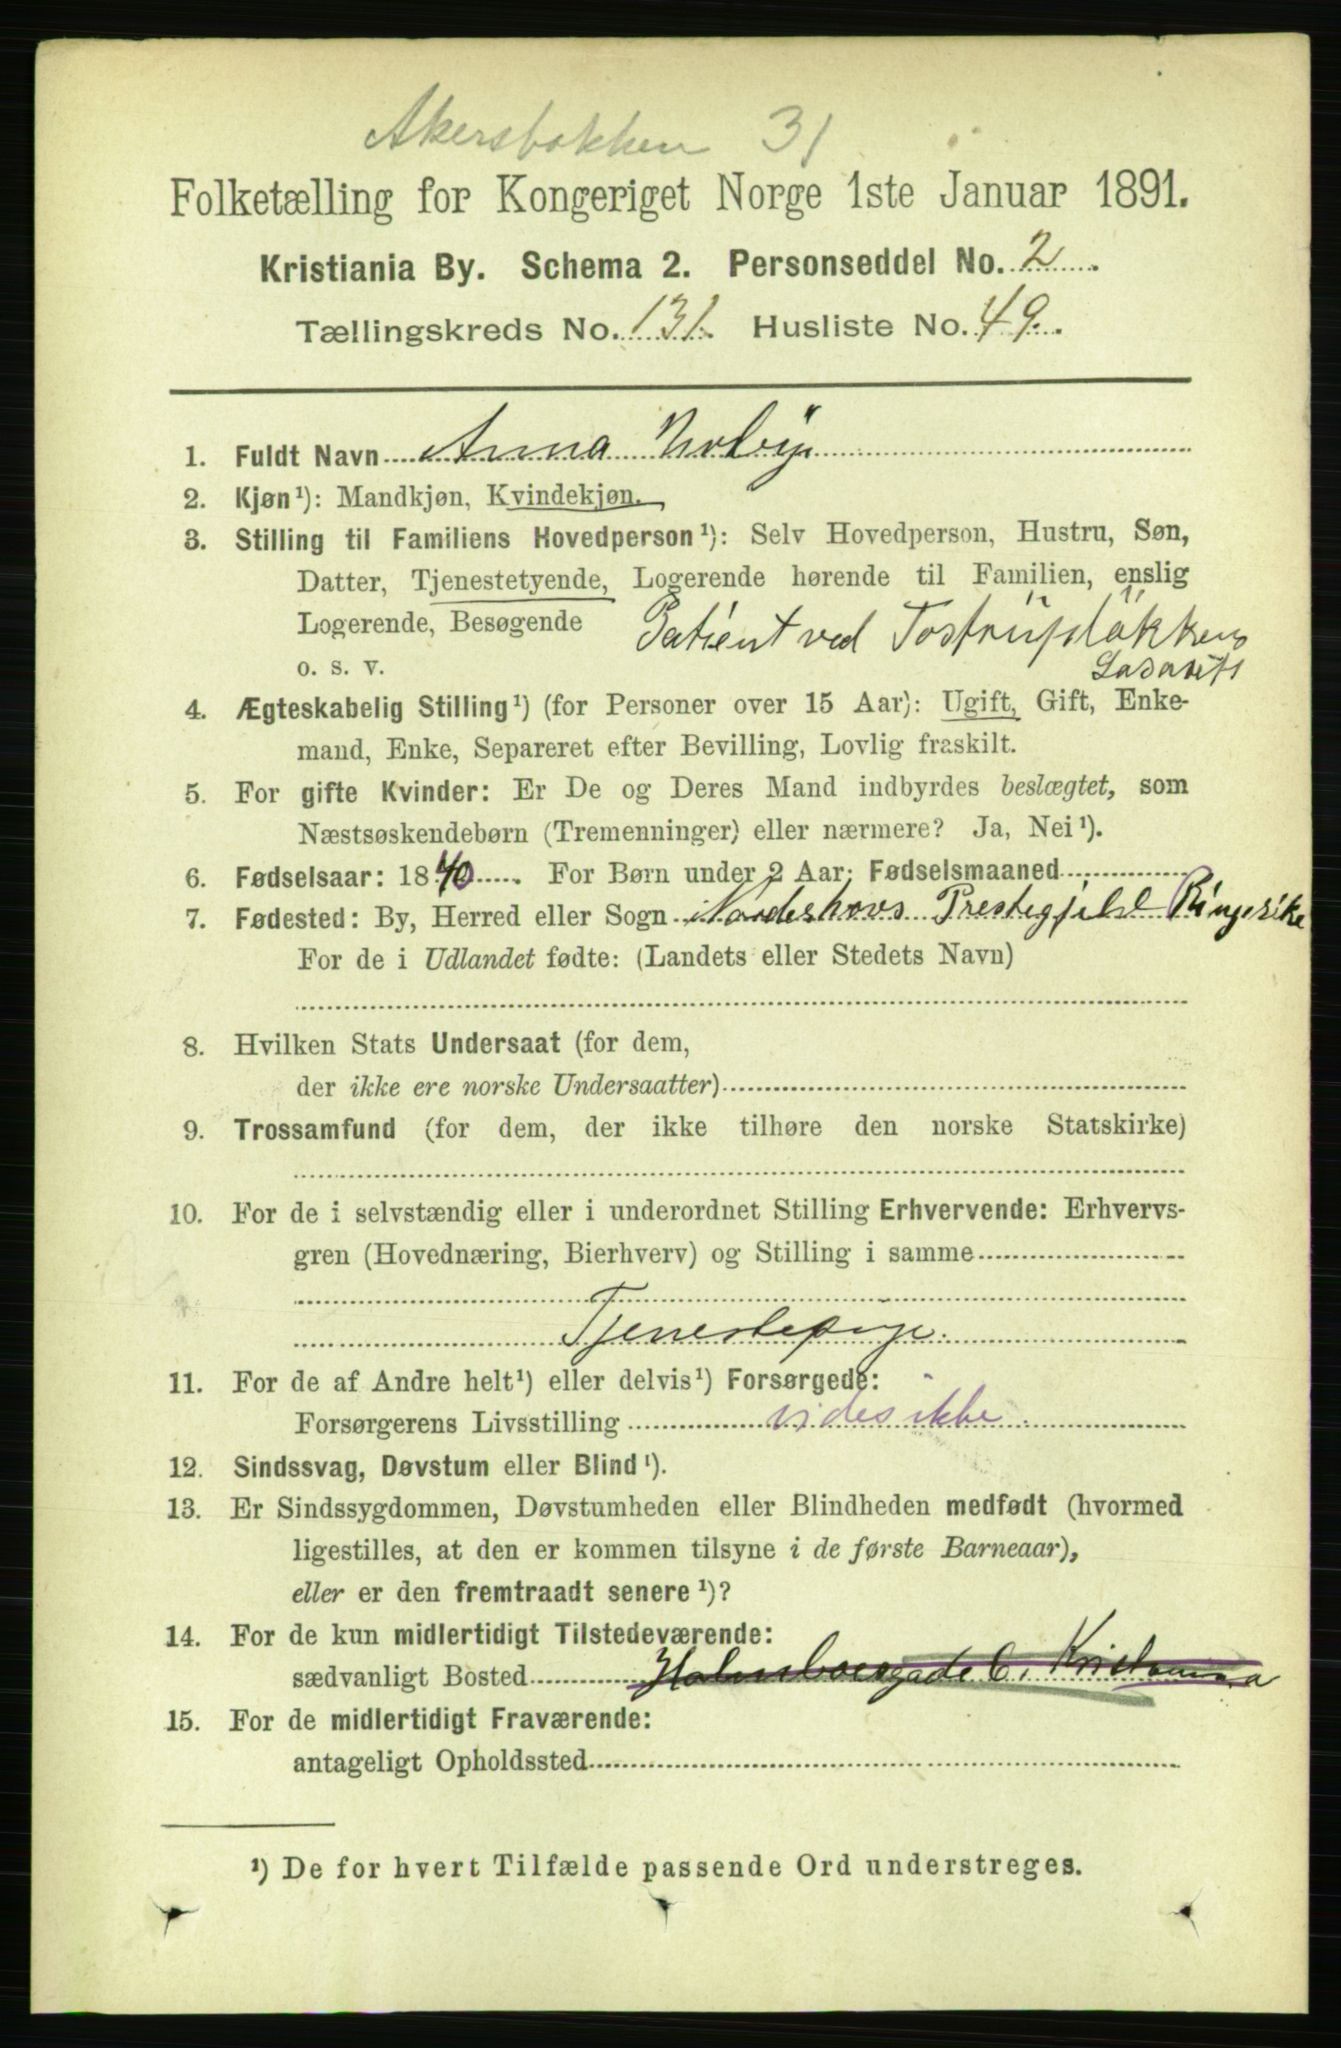 Akersbakken 31
Folketælling for Kongeriget Norge 1ste Januar 1891.
Kristiania By. Schema 2. Personseddel No. 2
Tællingskreds No. 131. Husliste No. 49.
1. Fuldt Navn Anna
2. Kjøn¹): Mandkjøn, Kvindekjøn.
3. Stilling til Familiens Hovedperson¹): Selv Hovedperson, Hustru, Søn,
Datter, Tjenestetyende, Logerende hørende til Familien, enslig
Logerende, Besøgende Patient ved Tostrupløkkens
o. s. v. Lasarett
4. Ægteskabelig Stilling¹) (for Personer over 15 Aar): Ugift, Gift, Enke-
mand, Enke, Separeret efter Bevilling, Lovlig fraskilt.
5. For gifte Kvinder: Er De og Deres Mand indbyrdes beslægtet, som
Næstsøskendebørn (Tremenninger) eller nærmere? Ja, Nei¹).
6. Fødselsaar: 1840 For Børn under 2 Aar: Fødselsmaaned
7. Fødested: By, Herred eller Sogn Norderhovs Prestegjeld Ringerike
For de i Udlandet fødte: (Landets eller Stedets Navn)
8. Hvilken Stats Undersaat (for dem,
der ikke ere norske Undersaatter)
9. Trossamfund (for dem, der ikke tilhøre den norske Statskirke)
10. For de i selvstændig eller i underordnet Stilling Erhvervende: Erhvervs-
gren (Hovednæring, Bierhverv) og Stilling i samme
Tjenestepige.
11. For de af Andre helt¹) eller delvis¹) Forsørgede:
Forsørgerens Livsstilling vides ikke.
12. Sindssvag, Døvstum eller Blind¹).
13. Er Sindssygdommen, Døvstumheden eller Blindheden medfødt (hvormed
ligestilles, at den er kommen tilsyne i de første Barneaar),
eller er den fremtraadt senere¹)?
14. For de kun midlertidigt Tilstedeværende:
sædvanligt Bosted Holmboesgade 6, Kristiania
15. For de midlertidigt Fraværende:
antageligt Opholdssted
¹) De for hvert Tilfælde passende Ord understreges.